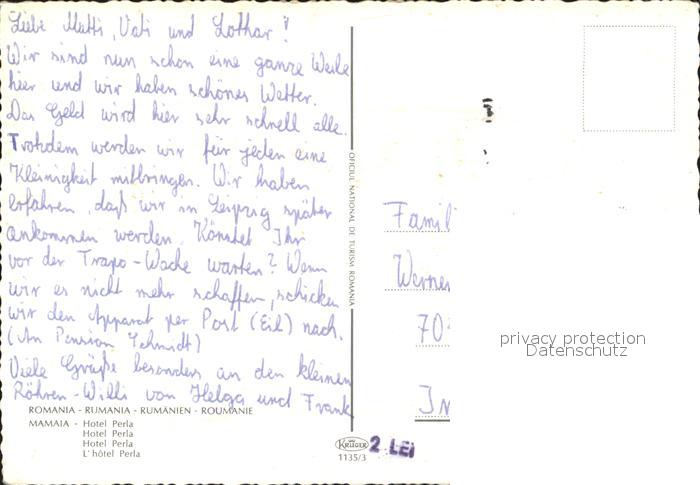 Liebe Mutti, Vati und Lothar!
Wir sind nun schon eine ganze Weile
hier und wir haben schönes Wetter.
Das Geld wird hier sehr schnell alle.
Trotzdem werden wir für jeden eine
Kleinigkeit mitbringen. Wir haben
erfahren, daß wir in Leipzig später
ankommen werden. Könntet Ihr
vor der Trapo-Wache warten? Wenn
wir es nicht mehr schaffen, schicken
wir den Apparat per Post (Eil) nach.
(An Pension Schmidt)
Viele Grüße besonders an den kleinen
Röhren-Willi von Helga und Frank
ROMANIA - RUMANIA - RUMÄNIEN - ROUMANIE
MAMAIA - Hotel Perla
Hotel Perla
Hotel Perla
L'hôtel Perla
OFICIUL NATIONAL DE TURISM ROMANIA
KRÜGER
1135/3
2 LEI
Famil
Werner
70
privacy protection
Datenschutz